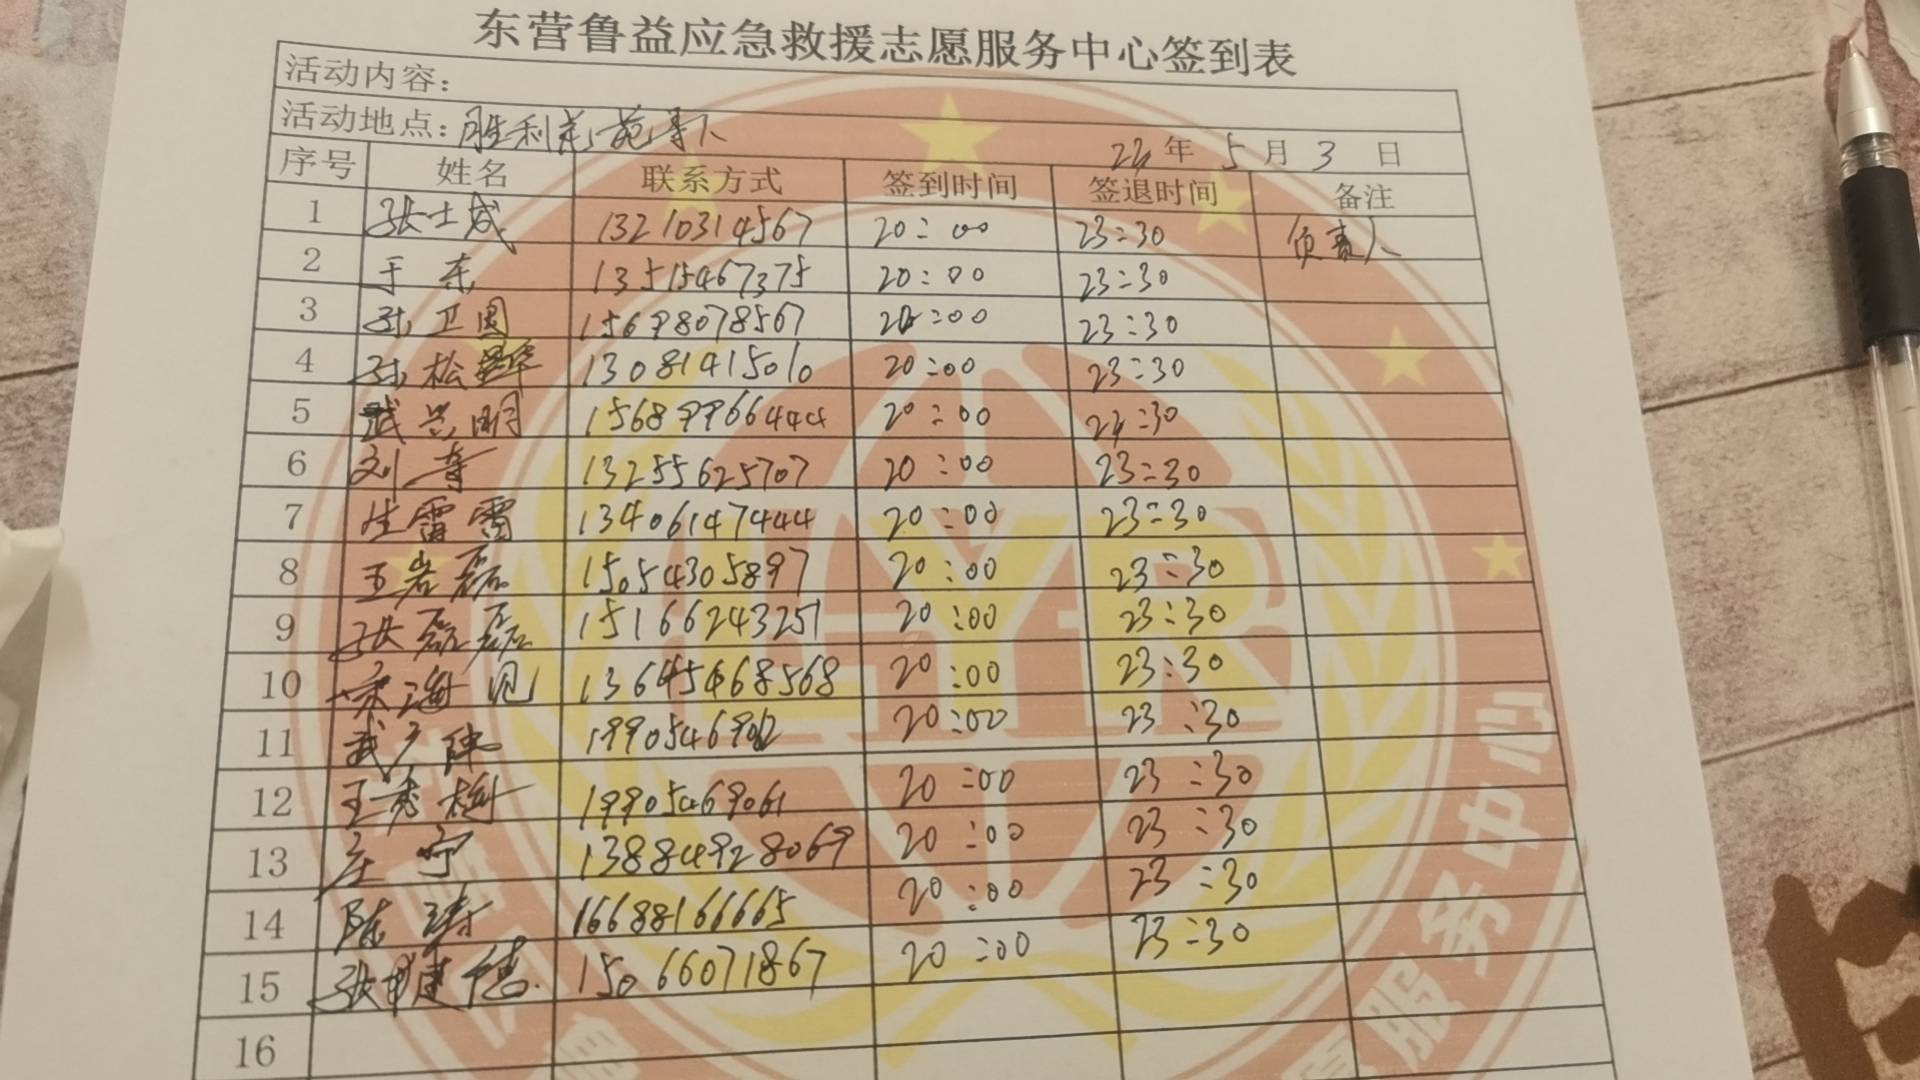 东营鲁益应急救援志愿服务中心签到表
活动内容:
活动地点: 胜利花苑寻人 24年5月3日
序号 姓名 联系方式 签到时间 签退时间 备注
1 张士成 13210314567 20:00 23:30 负责人
2 于东 13515467375 20:00 23:30
3 孙卫国 15698078567 20:00 23:30
4 孙松 13081415010 20:00 23:30
5 武兴明 15689966444 20:00 23:30
6 刘奇 13255625707 20:00 23:30
7 生雷雷 13406147444 20:00 23:30
8 王岩磊 15054305897 20:00 23:30
9 张磊磊 15166243251 20:00 23:30
10 宋海见 13645468568 20:00 23:30
11 武广 20:00 23:30
12 王秀梅 19905469061 20:00 23:30
13 庄宁 13884928069 20:00 23:30
14 陈涛 16688166665 20:00 23:30
15 张建德 15066071867 20:00 23:30
16
服务中心